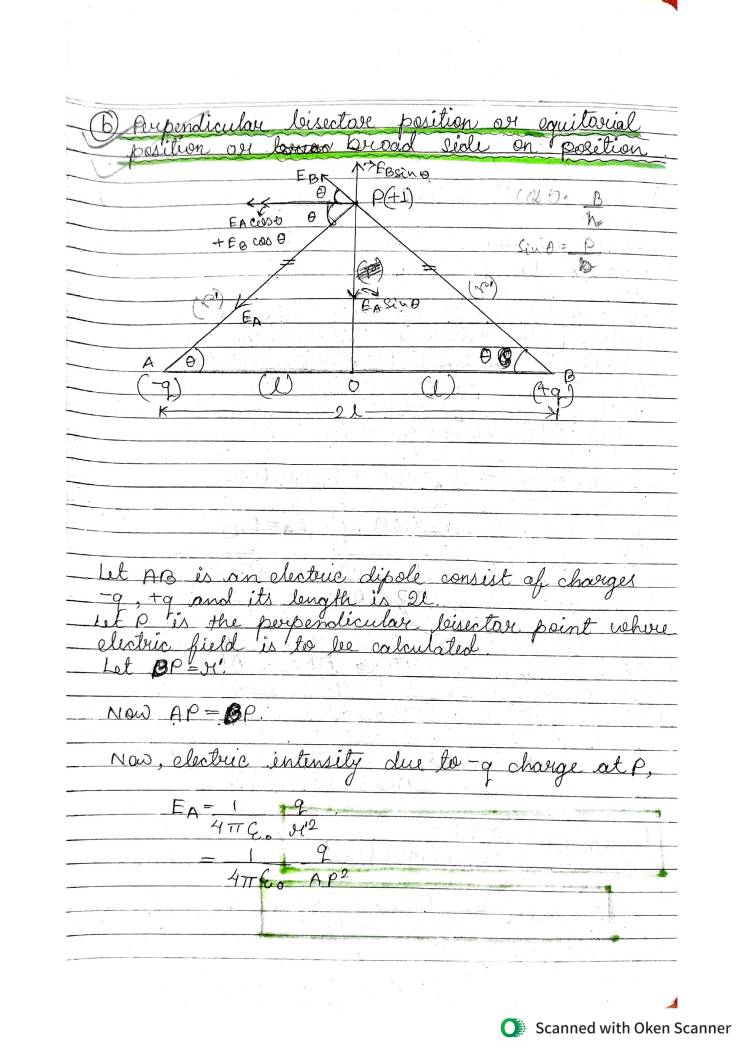 (b) Perpendicular bisector position or equitorial
position or broad side on position
EB
→EBsinθ
θ
P(+1)
cosθ = B/h
EAcosθ
+EB cosθ
θ
sinθ = P
(r')
(r')
EA
EAsinθ
A
θ
θ
B
(-q)
(l)
O
(l)
(+q)
2l
Let AB is an electric dipole consist of charges
-q, +q and its length is 2l.
Let P is the perpendicular bisector point where
electric field is to be calculated.
Let BP = r'.
Now AP = BP.
Now, electric intensity due to -q charge at P,
EA = 1/4πε₀ q/r'²
= 1/4πε₀ q/AP²
Scanned with Oken Scanner